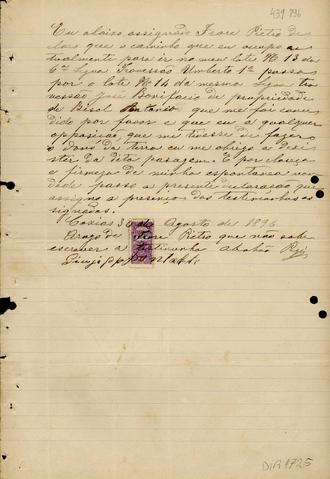 439 896
Eu abaixo assignado Fiore Pietro de
claro que o caminho que eu ocupo ac
tualmente para ir no meu lote Nº 13 da
6ª Legua Travessão Umberto 1º passa
por o lote Nº 14 da mesma legua tra
vessão José Bonifacio de propriedade
de Bisol Antonio que me foi conce
dido por favor e que eu á qualquer
opposição que me tivesse de fazer
o dono da terra eu me obrigo a dezis
ter da dita passagem. E por clareza
e firmeza de minha espontania von
dade passo a presente declarasão que
assigno a presença das testimunhas as
signadas.
Caxias 30 de Agosto de 1896
Arogo de Fiore Pietro que não sabe
escrever a testimunha Abahão
DIA 1725